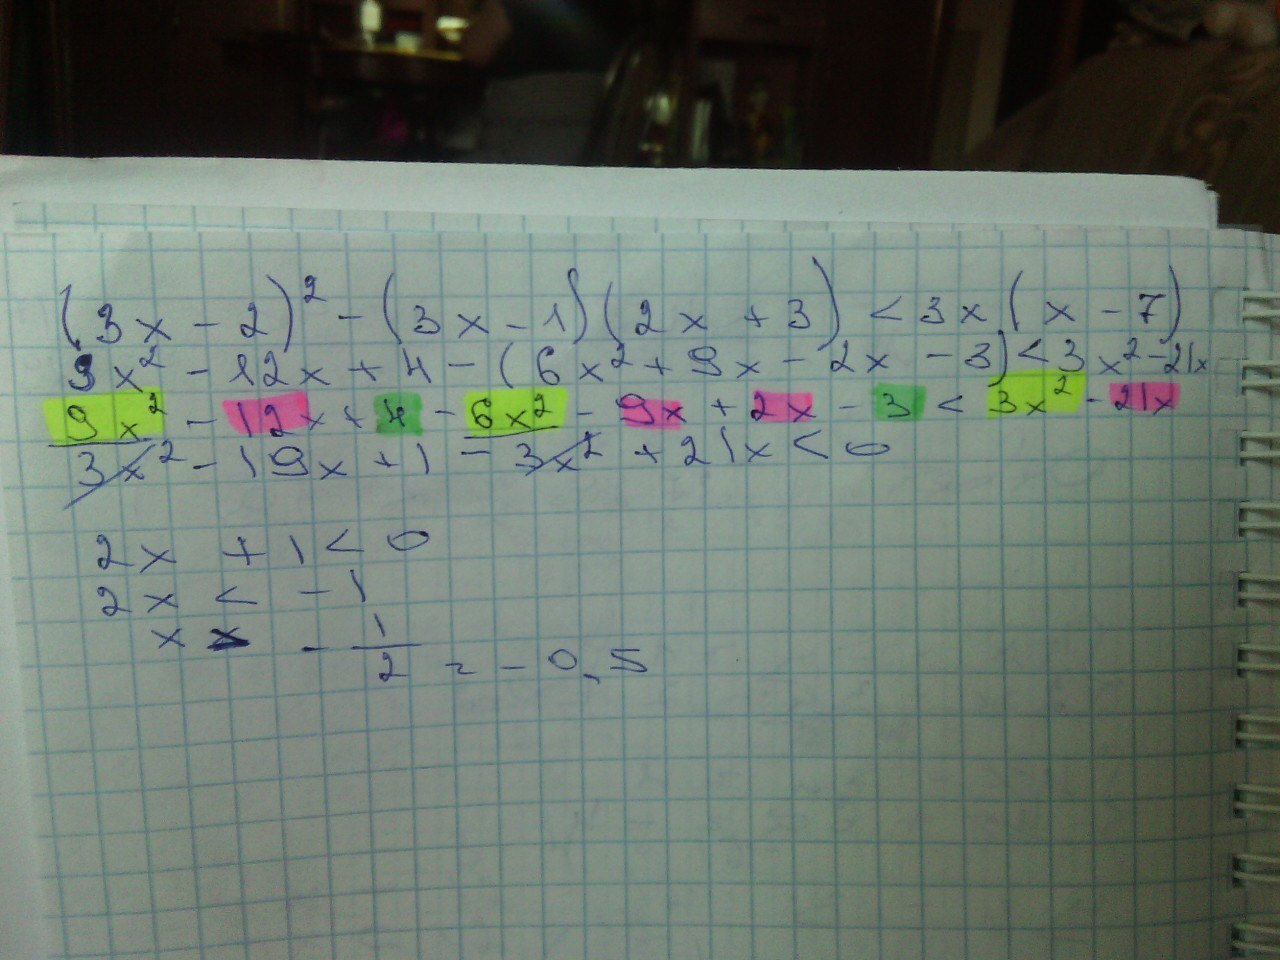 (3x - 2)² - (3x - 1)(2x + 3) < 3x(x - 7)
9x² - 12x + 4 - (6x² + 9x - 2x - 3) < 3x² - 21x
9x² - 12x + 4 - 6x² - 9x + 2x - 3 < 3x² - 21x
3x² - 19x + 1 - 3x² + 21x < 0
2x + 1 < 0
2x < -1
x < - 1/2 = - 0,5